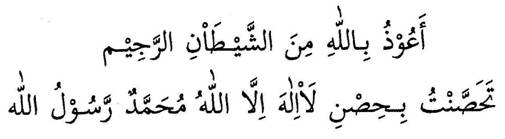 أَعُوْذُ بِاللّٰهِ مِنَ الشَّيْطَاْنِ الرَّجِيْم
تَحَصَّنْتُ بِحِصْنِ لَاْاِلٰهَ اِلَّا اللّٰهُ مُحَمَّدٌ رَّسُوْلُ اللّٰه